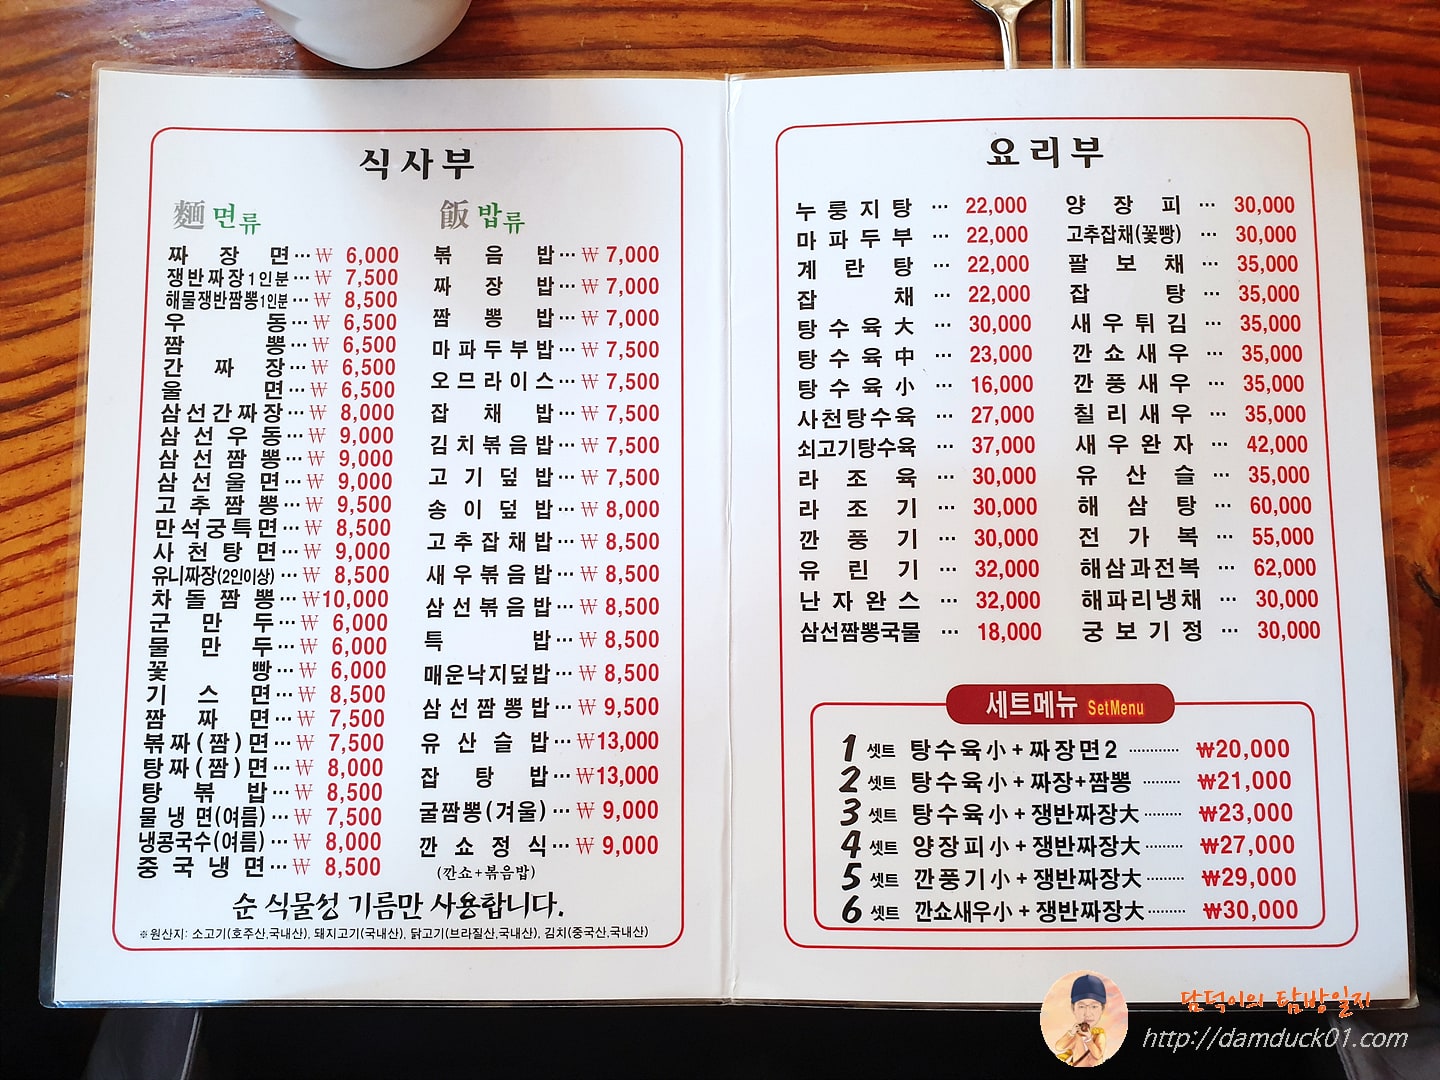 식사부
麵 면류
짜장면 … ₩ 6,000
쟁반짜장1인분 … ₩ 7,500
해물쟁반짬뽕1인분 … ₩ 8,500
우동 … ₩ 6,500
짬뽕 … ₩ 6,500
간짜장 … ₩ 6,500
울면 … ₩ 6,500
삼선간짜장 … ₩ 8,000
삼선우동 … ₩ 9,000
삼선짬뽕 … ₩ 9,000
삼선울면 … ₩ 9,000
고추짬뽕 … ₩ 9,500
만석궁특면 … ₩ 8,500
사천탕면 … ₩ 9,000
유니짜장(2인이상) … ₩ 8,500
차돌짬뽕 … ₩10,000
군만두 … ₩ 6,000
물만두 … ₩ 6,000
꽃빵 … ₩ 6,000
기스면 … ₩ 8,500
짬짜면 … ₩ 7,500
볶짜(짬)면 … ₩ 7,500
탕짜(짬)면 … ₩ 8,000
탕볶밥 … ₩ 8,500
물냉면(여름) … ₩ 7,500
냉콩국수(여름) … ₩ 8,000
중국냉면 … ₩ 8,500
飯 밥류
볶음밥 … ₩ 7,000
짜장밥 … ₩ 7,000
짬뽕밥 … ₩ 7,000
마파두부밥 … ₩ 7,500
오므라이스 … ₩ 7,500
잡채밥 … ₩ 7,500
김치볶음밥 … ₩ 7,500
고기덮밥 … ₩ 7,500
송이덮밥 … ₩ 8,000
고추잡채밥 … ₩ 8,500
새우볶음밥 … ₩ 8,500
삼선볶음밥 … ₩ 8,500
특밥 … ₩ 8,500
매운낙지덮밥 … ₩ 8,500
삼선짬뽕밥 … ₩ 9,500
유산슬밥 … ₩13,000
잡탕밥 … ₩13,000
굴짬뽕(겨울) … ₩ 9,000
깐쇼정식 … ₩ 9,000
(깐쇼+볶음밥)
순 식물성 기름만 사용합니다.
※원산지: 소고기(호주산,국내산), 돼지고기(국내산), 닭고기(브라질산,국내산), 김치(중국산,국내산)
요리부
누룽지탕 … 22,000
마파두부 … 22,000
계란탕 … 22,000
잡채 … 22,000
탕수육大 … 30,000
탕수육中 … 23,000
탕수육小 … 16,000
사천탕수육 … 27,000
쇠고기탕수육 … 37,000
라조육 … 30,000
라조기 … 30,000
깐풍기 … 30,000
유린기 … 32,000
난자완스 … 32,000
삼선짬뽕국물 … 18,000
양장피 … 30,000
고추잡채(꽃빵) … 30,000
팔보채 … 35,000
잡탕 … 35,000
새우튀김 … 35,000
깐쇼새우 … 35,000
깐풍새우 … 35,000
칠리새우 … 35,000
새우완자 … 42,000
유산슬 … 35,000
해삼탕 … 60,000
전가복 … 55,000
해삼과전복 … 62,000
해파리냉채 … 30,000
궁보기정 … 30,000
세트메뉴 SetMenu
1 셋트 탕수육小 + 짜장면2 ………… ₩20,000
2 셋트 탕수육小 + 짜장+짬뽕 ……… ₩21,000
3 셋트 탕수육小 + 쟁반짜장大 ……… ₩23,000
4 셋트 양장피小 + 쟁반짜장大 ……… ₩27,000
5 셋트 깐풍기小 + 쟁반짜장大 ……… ₩29,000
6 셋트 깐쇼새우小 + 쟁반짜장大 ……… ₩30,000
담덕이의 탐방일지
http://damduck01.com